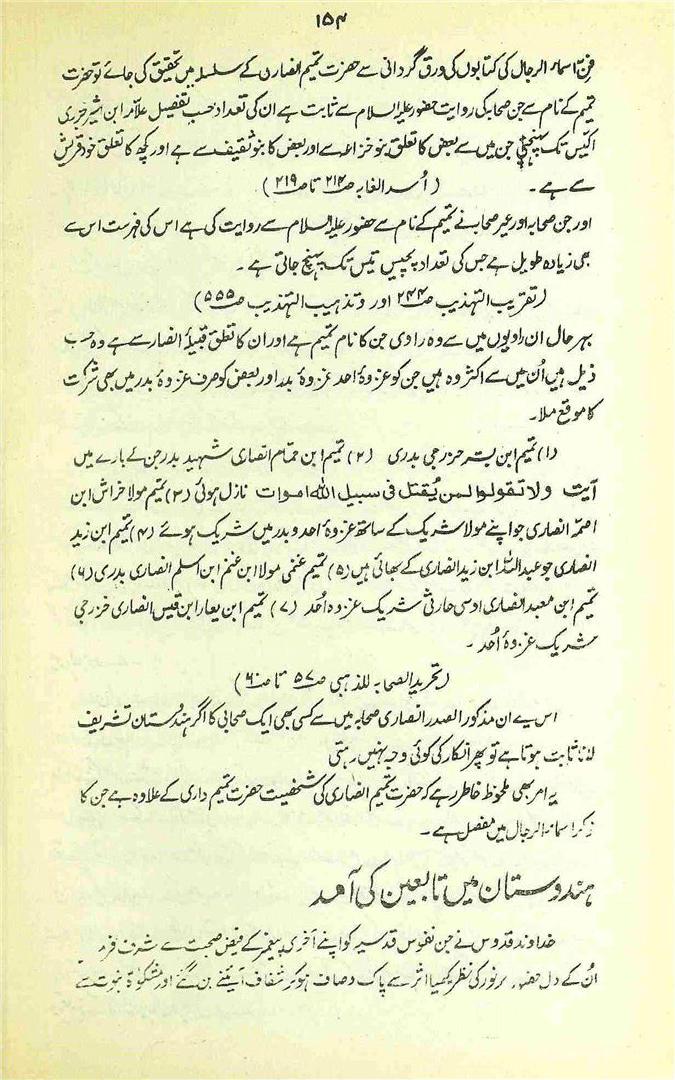 ۱۵۴
فن اسماء الرجال کی کتابوں کی ورق گردانی سے حضرت تمیم انصاری کے سلسلہ میں تحقیق کی جائے تو حضرت
تمیم کے نام سے جن صحابہ کی روایت حضور علیہ السلام سے ثابت ہے ان کی تعداد حسب تفصیل علامہ ابن اثیر جزری
اکیس تک پہنچتی ہے جن میں سے بعض کا تعلق بنو خزاعہ سے اور بعض کا بنو ثقیف سے ہے اور کچھ کا تعلق خود قریش
سے ہے۔ (اُسد الغابہ ص ۲۱۴ تا ص ۲۱۹)
اور جن صحابہ اور غیر صحابہ نے تمیم کے نام سے حضور علیہ السلام سے روایت کی ہے اس کی فہرست اس سے
بھی زیادہ طویل ہے جس کی تعداد پچیس تیس تک پہنچ جاتی ہے۔
(تقریب التہذیب ص ۲۴۴ اور وتذہیب التہذیب ص ۵۵۵)
بہر حال ان راویوں میں سے وہ راوی جن کا نام تمیم ہے اور ان کا تعلق قبیلۂ انصار سے ہے وہ حسب
ذیل ہیں اُن میں سے اکثر وہ ہیں جن کو غزوۂ احد غزوۂ بدر اور بعض کو صرف غزوۂ بدر میں بھی شرکت
کا موقع ملا۔
(۱) تمیم ابن خزرجی بدری (۲) تمیم ابن حمام انصاری شہید بدر جن کے بارے میں
آیت ولا تقولوا لمن یُقتل فی سبیل اللہ اموات نازل ہوئی (۳) تمیم مولا خراش ابن
انصاری جو اپنے مولا شریک کے ساتھ غزوۂ احد و بدر میں شریک ہوئے (۴) تمیم ابن زید
انصاری جو عبداللہ ابن زید انصاری کے بھائی ہیں (۵) تمیم غنمی مولا ابن غنم ابن اسلم انصاری بدری (۶)
تمیم ابن معبد انصاری اوسی حارثی شریک غزوہ اُحد (۷) تمیم ابن یعار ابن قیس انصاری خزرجی
شریک غزوۂ اُحد۔
(تجرید الصحابہ للذہبی ص ۵۷ تا ص ۶۰)
اس سے ان مذکور الصدر انصاری صحابہ میں سے کسی بھی ایک صحابی کا اگر ہندوستان تشریف
لانا ثابت ہوتا ہے تو پھر انکار کی کوئی وجہ نہیں رہتی
یہ امر بھی ملحوظ خاطر رہے کہ حضرت تمیم انصاری کی شخصیت حضرت تمیم داری کے علاوہ ہے جن کا
ذکر اسماء الرجال میں مفصل ہے۔
ہندوستان میں تابعین کی آمد
خداوند قدوس نے جن نفوس قدسیہ کو اپنے آخری پیغمبر کے فیض صحبت سے شرف
اُن کے دل حضور پر نور کی نظر کیمیا اثر سے پاک و صاف ہو کر شفاف آئینے بن گئے اور مشکوٰۃ نبوت سے